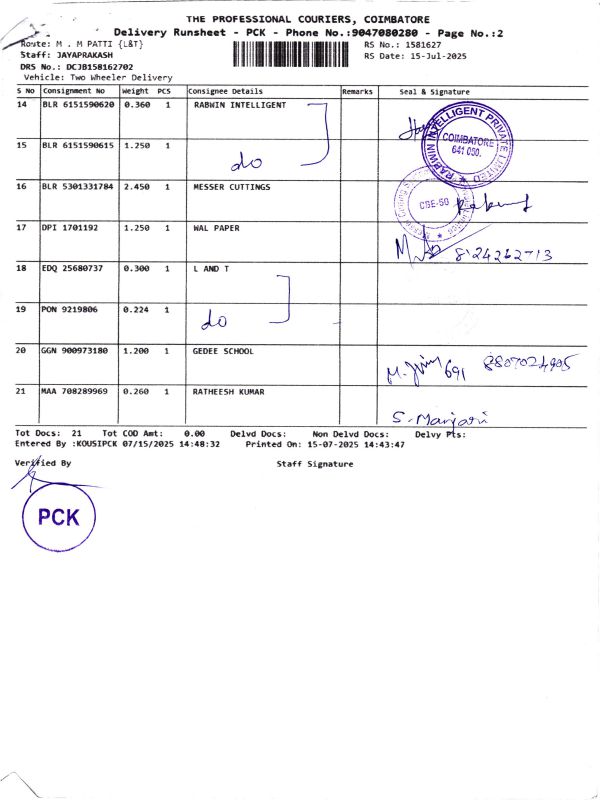 THE PROFESSIONAL COURIERS, COIMBATORE
Delivery Runsheet - PCK - Phone No.:9047080280 - Page No.:2
Route: M . M PATTI {L&T} RS No.: 1581627
Staff: JAYAPRAKASH RS Date: 15-Jul-2025
DRS No.: DCJB158162702
Vehicle: Two Wheeler Delivery
S No Consignment No Weight PCS Consignee Details Remarks Seal & Signature
14 BLR 6151590620 0.360 1 RABWIN INTELLIGENT
RABWIN INTELLIGENT PRIVATE LIMITED
COIMBATORE
641 050.
15 BLR 6151590615 1.250 1
do
16 BLR 5301331784 2.450 1 MESSER CUTTINGS
CBE-50
17 DPI 1701192 1.250 1 WAL PAPER
8124262713
18 EDQ 25680737 0.300 1 L AND T
19 PON 9219806 0.224 1
do
20 GGN 900973180 1.200 1 GEDEE SCHOOL
691 8807024905
21 MAA 708289969 0.260 1 RATHEESH KUMAR
S. Manjari
Tot Docs: 21 Tot COD Amt: 0.00 Delvd Docs: Non Delvd Docs: Delvy Pts:
Entered By :KOUSIPCK 07/15/2025 14:48:32 Printed On: 15-07-2025 14:43:47
Verified By Staff Signature
PCK